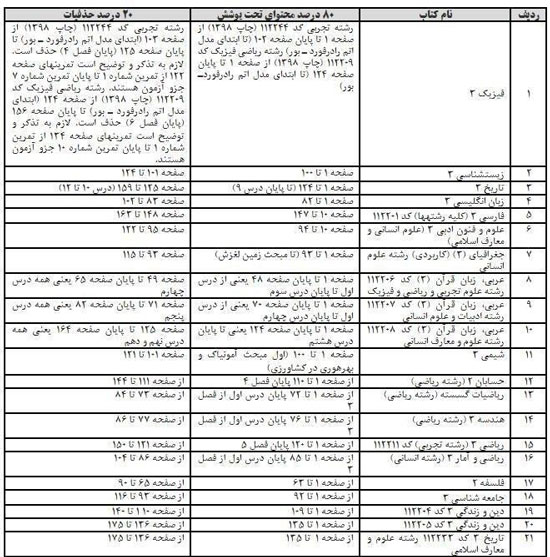 ردیف	نام کتاب	۸۰ درصد محتوای تحت پوشش	۲۰ درصد حذفیات
۱	فیزیک ۳	رشته تجربی کد ۱۱۲۲۴۴ (چاپ ۱۳۹۸) از صفحه ۱ تا پایان صفحه ۱۰۲ (تا ابتدای مدل اتم رادرفورد – بور) رشته ریاضی فیزیک کد ۱۱۲۲۰۹ (چاپ ۱۳۹۸) از صفحه ۱ تا پایان صفحه ۱۲۴ (تا ابتدای مدل اتم رادرفورد– بور)	رشته تجربی کد ۱۱۲۲۴۴ (چاپ ۱۳۹۸) از صفحه ۱۰۳ (ابتدای مدل اتم رادرفورد – بور) تا پایان صفحه ۱۲۵ (پایان فصل ۴) حذف است. لازم به تذکر و توضیح است تمرینهای صفحه ۱۲۲ از تمرین شماره ۱ تا پایان تمرین شماره ۷ جزو آزمون هستند. رشته ریاضی فیزیک کد ۱۱۲۲۰۹ (چاپ ۱۳۹۸) از صفحه ۱۲۴ (ابتدای مدل اتم رادرفورد – بور) تا پایان صفحه ۱۵۶ (پایان فصل ۶) حذف است. لازم به تذکر و توضیح است تمرینهای صفحه ۱۳۴ از تمرین شماره ۱ تا پایان تمرین شماره ۱۰ جزو آزمون هستند.
۲	زیستشناسی ۳	صفحه ۱ تا ۱۰۰	صفحه ۱۰۱ تا ۱۲۴
۳	تاریخ ۳	صفحه ۱ تا ۱۲۴ (تا پایان درس ۹)	صفحه ۱۲۵ تا ۱۵۹ (درس ۱۰ تا ۱۲)
۴	زبان انگلیسی ۳	صفحه ۱ تا ۸۲	صفحه ۸۳ تا ۱۰۲
۵	فارسی ۳ (کلیه رشتهها) کد ۱۱۲۲۰۱	صفحه ۱۰ تا ۱۴۷	صفحه ۱۴۸ تا ۱۶۳
۶	علوم و فنون ادبی ۳ (علوم انسانی و معارف اسلامی)	صفحه ۱۰ تا ۹۴	صفحه ۹۵ تا ۱۲۲
۷	جغرافیای (۳) (کاربردی) رشته علوم انسانی	صفحه ۱ تا ۹۲ (تا مبحث زمین لغزش)	صفحه ۹۳ تا ۱۱۵
۸	عربی، زبان قرآن (۳) کد ۱۱۲۲۰۶ رشته علوم تجربی و ریاضی و فیزیک	صفحه ۱ تا پایان صفحه ۴۸ یعنی از درس اول تا پایان درس سوم	صفحه ۴۹ تا پایان صفحه ۶۵ یعنی همه درس چهارم
۹	عربی، زبان قرآن (۳) کد ۱۱۲۲۰۷ رشته ادبیات و علوم انسانی	صفحه ۱ تا پایان صفحه ۷۰ یعنی از درس اول تا پایان درس چهارم	صفحه ۷۱ تا پایان صفحه ۸۲ یعنی همه درس پنجم
۱۰	عربی، زبان قرآن (۳) کد ۱۱۲۲۰۸ رشته علوم و معارف انسانی	صفحه ۱ تا پایان صفحه ۱۲۴ یعنی تا پایان درس هشتم	صفحه ۱۲۵ تا پایان صفحه ۱۶۴ یعنی همه درس نهم و دهم
۱۱	شیمی ۳	صفحه ۱ تا ۱۰۰ (اول مبحث آمونیاک و بهرهوری در کشاورزی)	صفحه ۱۰۱ تا ۱۲۱
۱۲	حسابان ۲ (رشته ریاضی)	از صفحه ۱ تا ۱۱۰ پایان فصل ۴	از صفحه ۱۱۱ تا ۱۴۴
۱۳	ریاضیات گسسته (رشته ریاضی)	از صفحه ۱ تا ۷۲ پایان درس اول از فصل ۳	از صفحه ۷۳ تا ۸۴
۱۴	هندسه ۳ (رشته ریاضی)	از صفحه ۱ تا ۷۶ پایان درس اول از فصل ۳	از صفحه ۷۷ تا ۸۶
۱۵	ریاضی ۳ (رشته تجربی) کد ۱۱۲۲۱۱	از صفحه ۱ تا ۱۲۰ پایان فصل ۵	از صفحه ۱۲۱ تا ۱۵۰
۱۶	ریاضی و آمار ۳ (رشته انسانی)	از صفحه ۱ تا ۸۵ پایان درس اول از فصل ۳	از صفحه ۸۶ تا ۱۰۴
۱۷	فلسفه ۲	از صفحه ۱ تا ۶۳	از صفحه ۶۵ تا ۹۰
۱۸	جامعه شناسی ۳	از صفحه ۱ تا ۹۲	از صفحه ۹۳ تا ۱۱۶
۱۹	دین و زندگی ۳ کد ۱۱۲۲۰۴	از صفحه ۱ تا ۱۰۹	از صفحه ۱۱۰ تا ۱۴۰
۲۰	دین و زندگی ۳ کد ۱۱۲۲۰۵	از صفحه ۱ تا ۱۳۵	از صفحه ۱۳۶ تا ۱۷۵
۲۱	تاریخ ۳ کد ۱۱۲۲۳۳ رشته علوم و معارف اسلامی	از صفحه ۱ تا ۱۳۵	از صفحه ۱۳۶ تا ۱۷۵